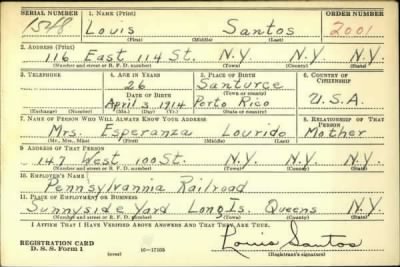 SERIAL NUMBER 1. NAME (Print) ORDER NUMBER
1548 Louis Santos 2001
(First) (Middle) (Last)
2. ADDRESS (Print)
116 East 114 St. N.Y. N.Y.
(Number and street or R. F. D. number) (Town) (County) (State)
3. TELEPHONE 4. AGE IN YEARS 5. PLACE OF BIRTH 6. COUNTRY OF CITIZENSHIP
26 Santurce
DATE OF BIRTH (Town or county)
April 3 1914 Porto Rico U.S.A.
(Exchange) (Number) (Mo.) (Day) (Yr.) (State or country)
7. NAME OF PERSON WHO WILL ALWAYS KNOW YOUR ADDRESS 8. RELATIONSHIP OF THAT PERSON
Mrs. Esperanza Lourido Mother
(Mr., Mrs., Miss) (First) (Middle) (Last)
9. ADDRESS OF THAT PERSON
147 West 100 St. N.Y. N.Y. N.Y.
(Number and street or R. F. D. number) (Town) (County) (State)
10. EMPLOYER'S NAME
Pennsylvannia Railroad
11. PLACE OF EMPLOYMENT OR BUSINESS
Sunnyside Yard Long Is. Queens N.Y.
(Number and street or R. F. D. number) (Town) (County) (State)
I AFFIRM THAT I HAVE VERIFIED ABOVE ANSWERS AND THAT THEY ARE TRUE.
Louis Santos
REGISTRATION CARD
D. S. S. Form 1 (over) 16-17105 (Registrant's signature)